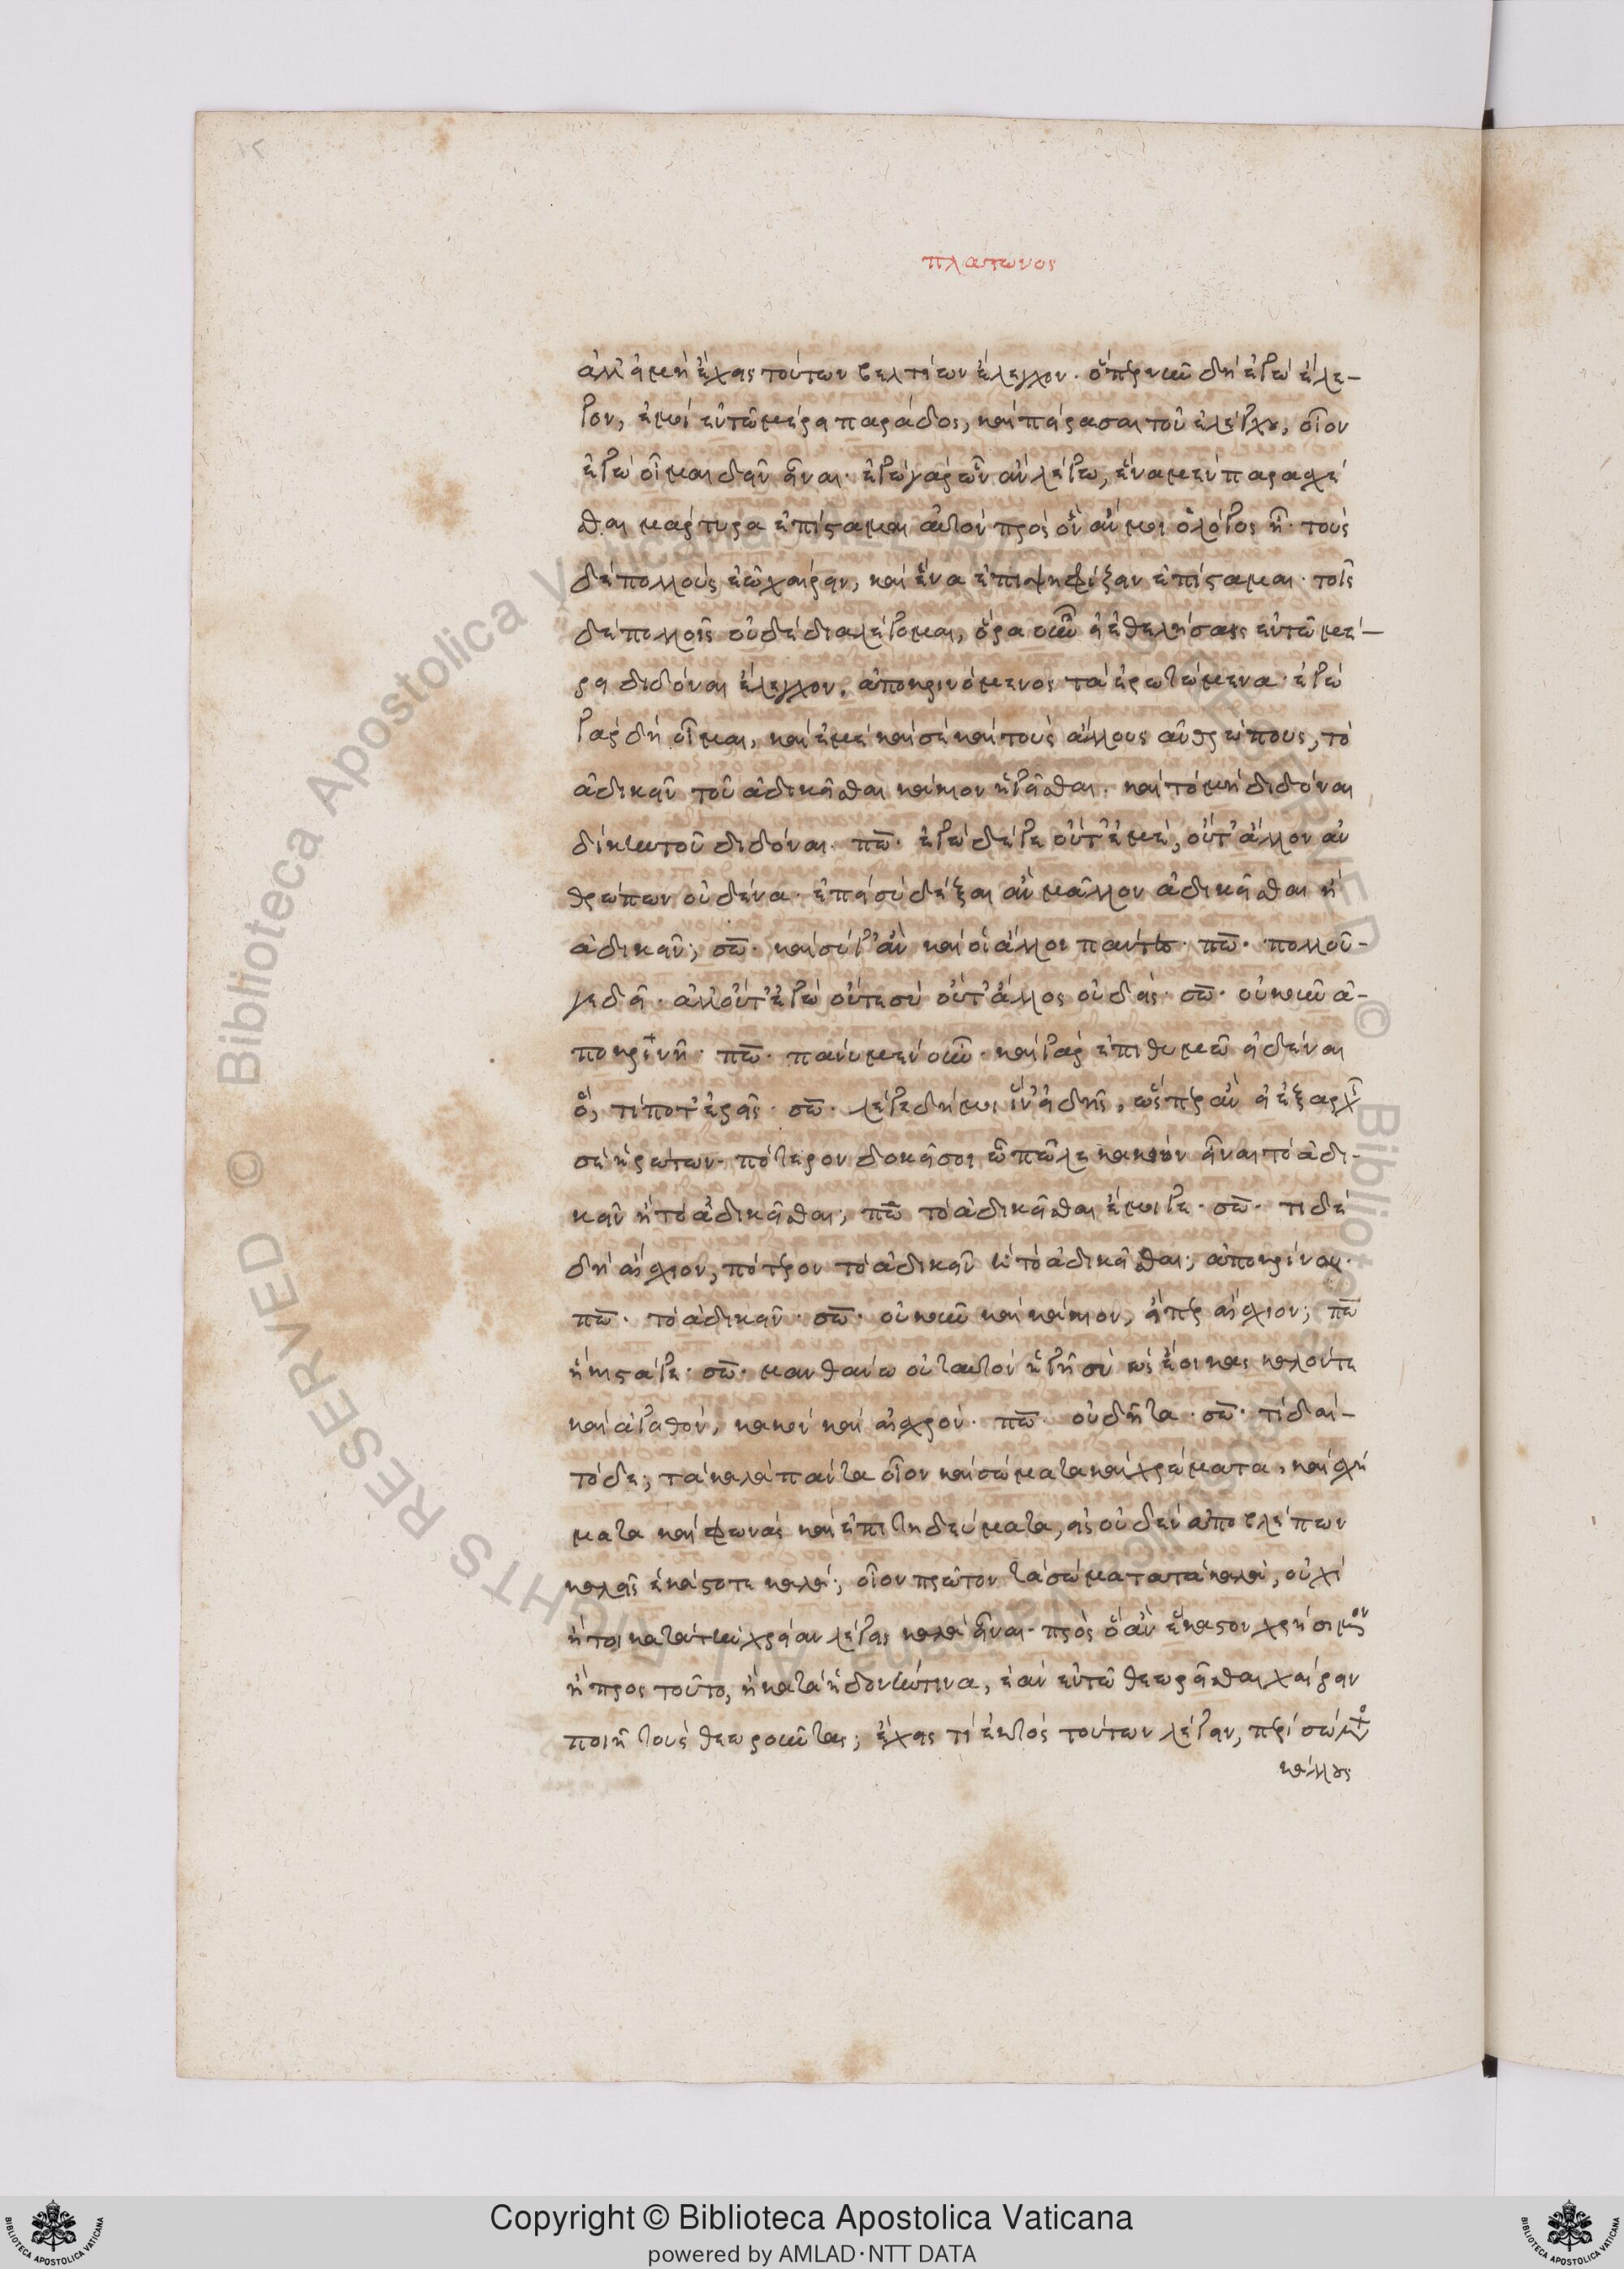 πλατωνος
ἀλλ' εἰ μὴ ἔχεις τούτων βελτίων ἔλεγχον. ὅπερ νῦν δὴ ἐγὼ ἔλε-
γον, ἐμοὶ ἐν τῷ μέρει παράδος, καὶ πείρασαι τοῦ ἐλέγχου, οἷον
ἐγὼ οἶμαι δεῖν εἶναι. ἐγὼ γὰρ ὧν ἂν λέγω, ἕνα μὲν παρασχέ
σθαι μάρτυρα ἐπίσταμαι αὐτὸν πρὸς ὃν ἄν μοι ὁ λόγος ᾖ. τοὺς
δὲ πολλοὺς ἐῶ χαίρειν, καὶ ἕνα ἐπιψηφίζειν ἐπίσταμαι. τοῖς
δὲ πολλοῖς οὐδὲ διαλέγομαι, ὅρα οὖν εἰ ἐθελήσεις ἐν τῷ μέ-
ρει διδόναι ἔλεγχον, ἀποκρινόμενος τὰ ἐρωτώμενα. ἐγὼ
γὰρ δὴ οἶμαι, καὶ ἐμὲ καὶ σὲ καὶ τοὺς ἄλλους ἀνθρώπους, τὸ
ἀδικεῖν τοῦ ἀδικεῖσθαι κάκιον ἡγεῖσθαι. καὶ τὸ μὴ διδόναι
δίκην τοῦ διδόναι. πῶ. ἐγὼ δέ γε οὔτ' ἐμὲ, οὔτ' ἄλλον ἀν
θρώπων οὐδένα. ἐπεὶ σὺ δέξαι ἂν μᾶλλον ἀδικεῖσθαι ἢ
ἀδικεῖν; σω. καὶ σύ γ' ἂν καὶ οἱ ἄλλοι πάντες. πῶ. πολλοῦ-
γε δεῖ. ἀλλ' οὔτ' ἐγὼ οὔτε σὺ οὔτ' ἄλλος οὐδείς. σω. οὐκοῦν ἀ-
ποκρινῇ. πῶ. πάνυ μὲν οὖν. καὶ γὰρ ἐπιθυμῶ εἰδέναι
ὅ, τι ποτ' ἐρεῖς. σω. λέγε δή μοι ἵν' εἰδῇς, ὥσπερ ἂν εἰ ἐξ ἀρχῆς
σὲ ἠρώτων. πότερον δοκεῖ σοι ὦ πῶλε κακιον εἶναι τὸ ἀδι-
κεῖν ἢ τὸ ἀδικεῖσθαι; πῶ τὸ ἀδικεῖσθαι ἔμοιγε. σω. τί δὲ
δὴ αἴσχιον, πότερον τὸ ἀδικεῖν ἢ τὸ ἀδικεῖσθαι; ἀποκρίνου.
πῶ. τὸ ἀδικεῖν. σω. οὐκοῦν καὶ κάκιον, εἴπερ αἴσχιον; πῶ
ἥκιστά γε. σω. μανθάνω οὐ ταυτὸν ἡγῇ σὺ ὡς ἔοικας καλόν τε
καὶ ἀγαθόν, κακὸν καὶ αἰσχρόν. πῶ. οὐ δῆτα. σω. τί δαὶ-
τόδε; τὰ καλὰ πάντα οἷον καὶ σώματα καὶ χρώματα, καὶ σχή
ματα καὶ φωνὰς καὶ ἐπιτηδεύματα, εἰς οὐδὲν ἀποβλέπων
καλεῖς ἑκάστοτε καλά; οἷον πρῶτον τὰ σώματα τὰ καλά, οὐχὶ
ἤτοι κατὰ τὴν χρείαν λέγεις καλὰ εἶναι. πρὸς ὃ ἂν ἕκαστον χρήσιμον
ᾖ πρὸς τοῦτο, ἢ κατὰ ἡδονήν τινα, ἐὰν ἐν τῷ θεωρεῖσθαι χαίρειν
ποιῇ τοὺς θεωροῦντας; ἔχεις τι ἐκτὸς τούτων λέγειν, περὶ σώματος
κάλλους
Copyright © Biblioteca Apostolica Vaticana
powered by AMLAD·NTT DATA